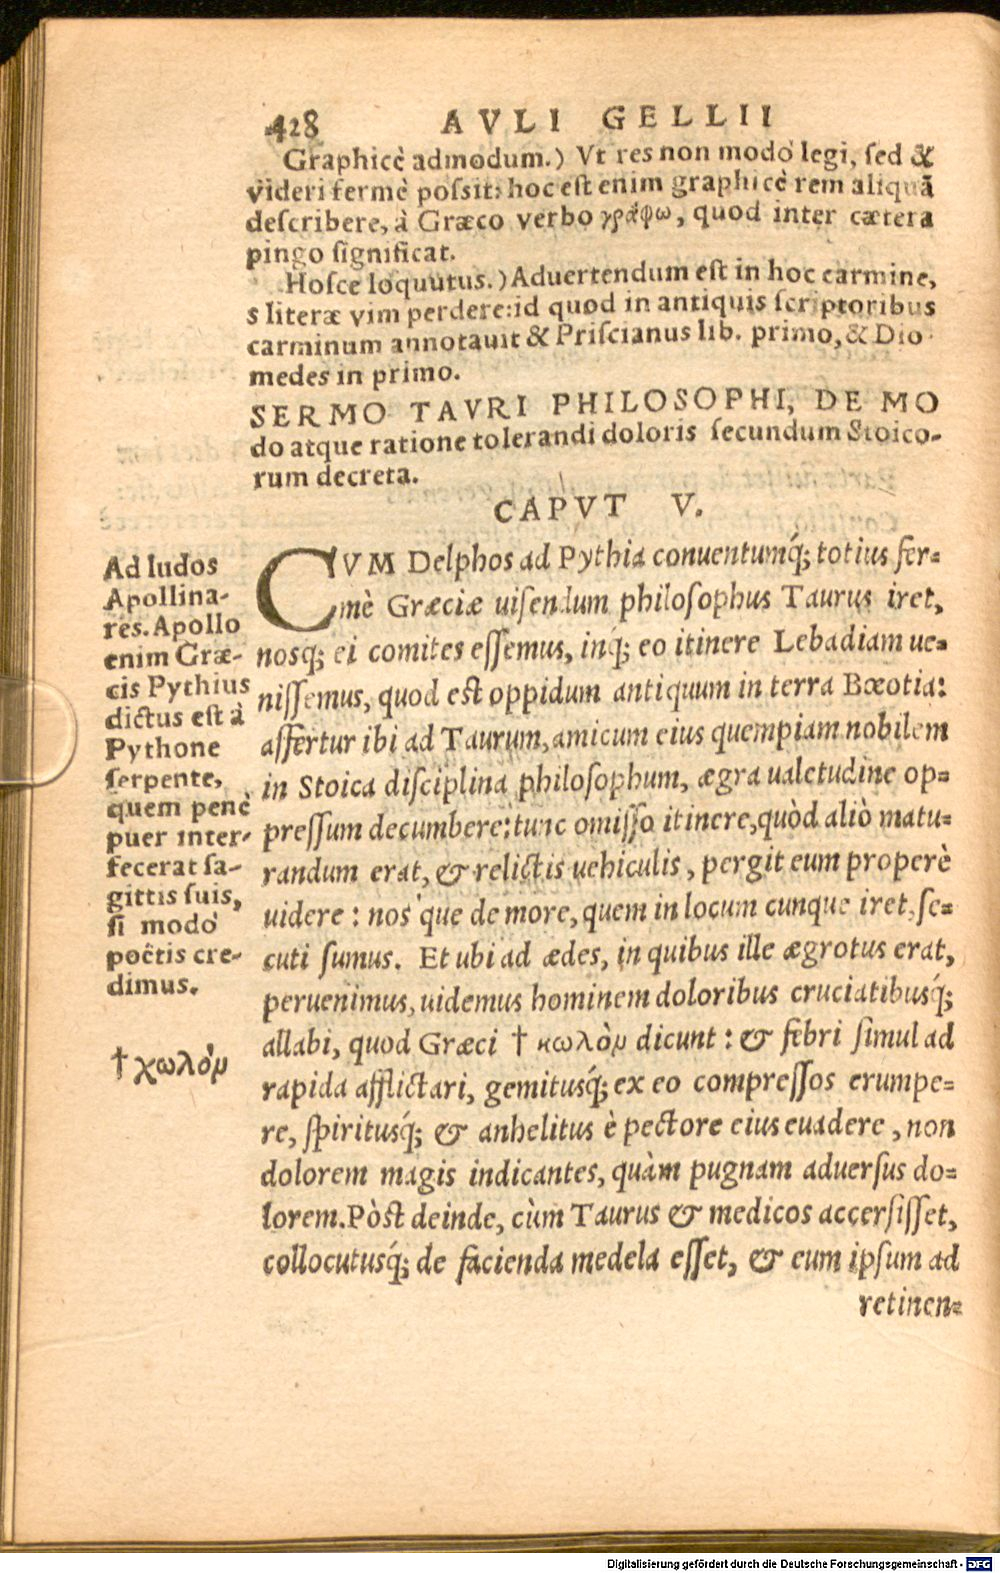 428 AVLI GELLII
Graphicè admodum.) Vt res non modò legi, sed &
videri fermè possit: hoc est enim graphicè rem aliquā
describere, à Græco verbo γράφω, quod inter cætera
pingo significat.
Hosce loquutus.) Aduertendum est in hoc carmine,
s literæ vim perdere: id quod in antiquis scriptoribus
carminum annotauit & Priscianus lib. primo, & Dio-
medes in primo.
SERMO TAVRI PHILOSOPHI, DE MO
do atque ratione tolerandi doloris secundum Stoico-
rum decreta.
CAPVT V.
CVM Delphos ad Pythia conuentumq́; totius fer-
mè Græciæ uisendum philosophus Taurus iret,
nosq; ei comites essemus, inq́; eo itinere Lebadiam ue-
nissemus, quod est oppidum antiquum in terra Bœotia:
affertur ibi ad Taurum, amicum eius quempiam nobilem
in Stoica disciplina philosophum, ægra ualetudine op-
pressum decumbere: tunc omisso itinere, quòd aliò matu-
randum erat, & relictis uehiculis, pergit eum properè
uidere: nos que de more, quem in locum cunque iret, se-
cuti sumus. Et ubi ad ædes, in quibus ille ægrotus erat,
peruenimus, uidemus hominem doloribus cruciatibusq́;
allabi, quod Græci † κωλὸμ dicunt: & febri simul ad
rapida afflictari, gemitusq́; ex eo compressos erumpe-
re, spiritusq́; & anhelitus è pectore eius euadere, non
dolorem magis indicantes, quàm pugnam aduersus do-
lorem. Pòst deinde, cùm Taurus & medicos accersisset,
collocutusq́; de facienda medela esset, & eum ipsum ad
retinen-
Ad ludos
Apollina-
res. Apollo
enim Græ-
cis Pythius
dictus est à
Pythone
serpente,
quem penè
puer inter-
fecerat sa-
gittis suis,
si modò
poëtis cre-
dimus.
† χωλὸμ
Digitalisierung gefördert durch die Deutsche Forschungsgemeinschaft - DFG